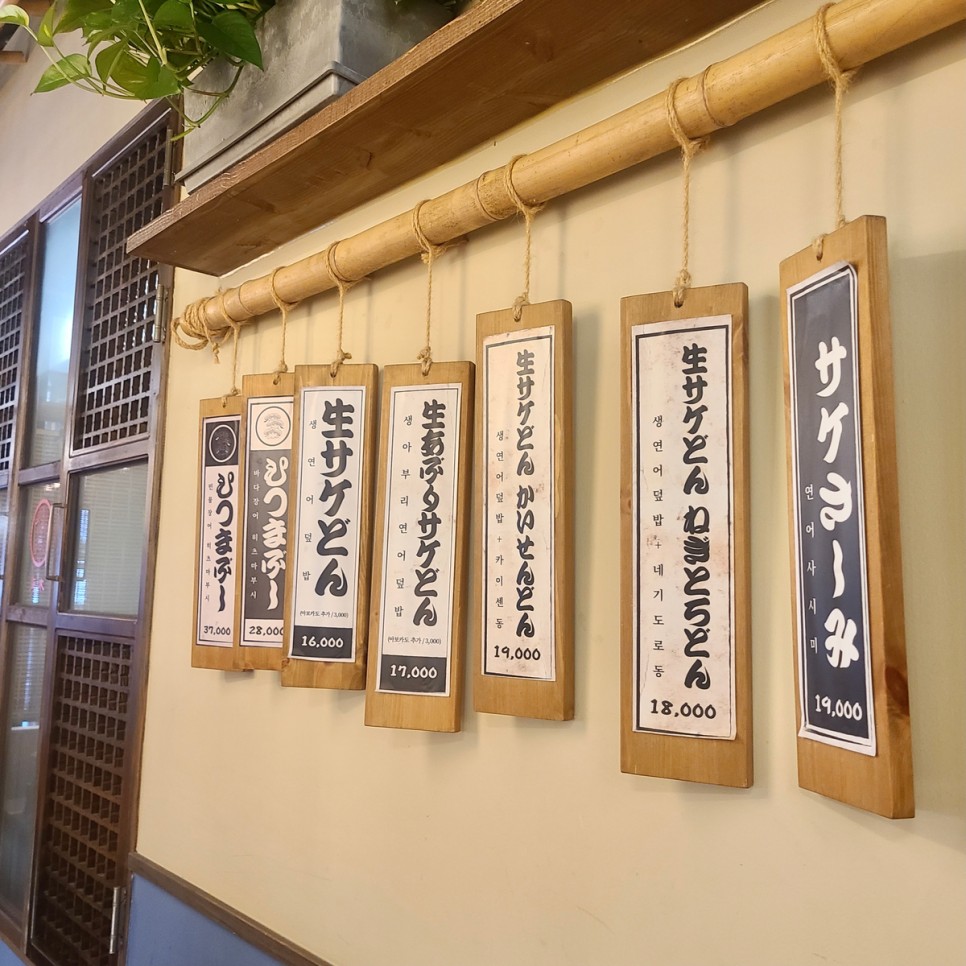 ひつまぶし
민물장어 히츠마부시
37,000
ひつまぶし
바다장어 히츠마부시
28,000
生サケどん
생연어덮밥
(아보카도 추가 / 3,000)
16,000
生あぶりサケどん
생아부리연어덮밥
(아보카도 추가 / 3,000)
17,000
生サケどん かいせんどん
생연어덮밥+카이센동
19,000
生サケどん ねぎとろどん
생연어덮밥+네기도로동
18,000
サケさしみ
연어사시미
19,000